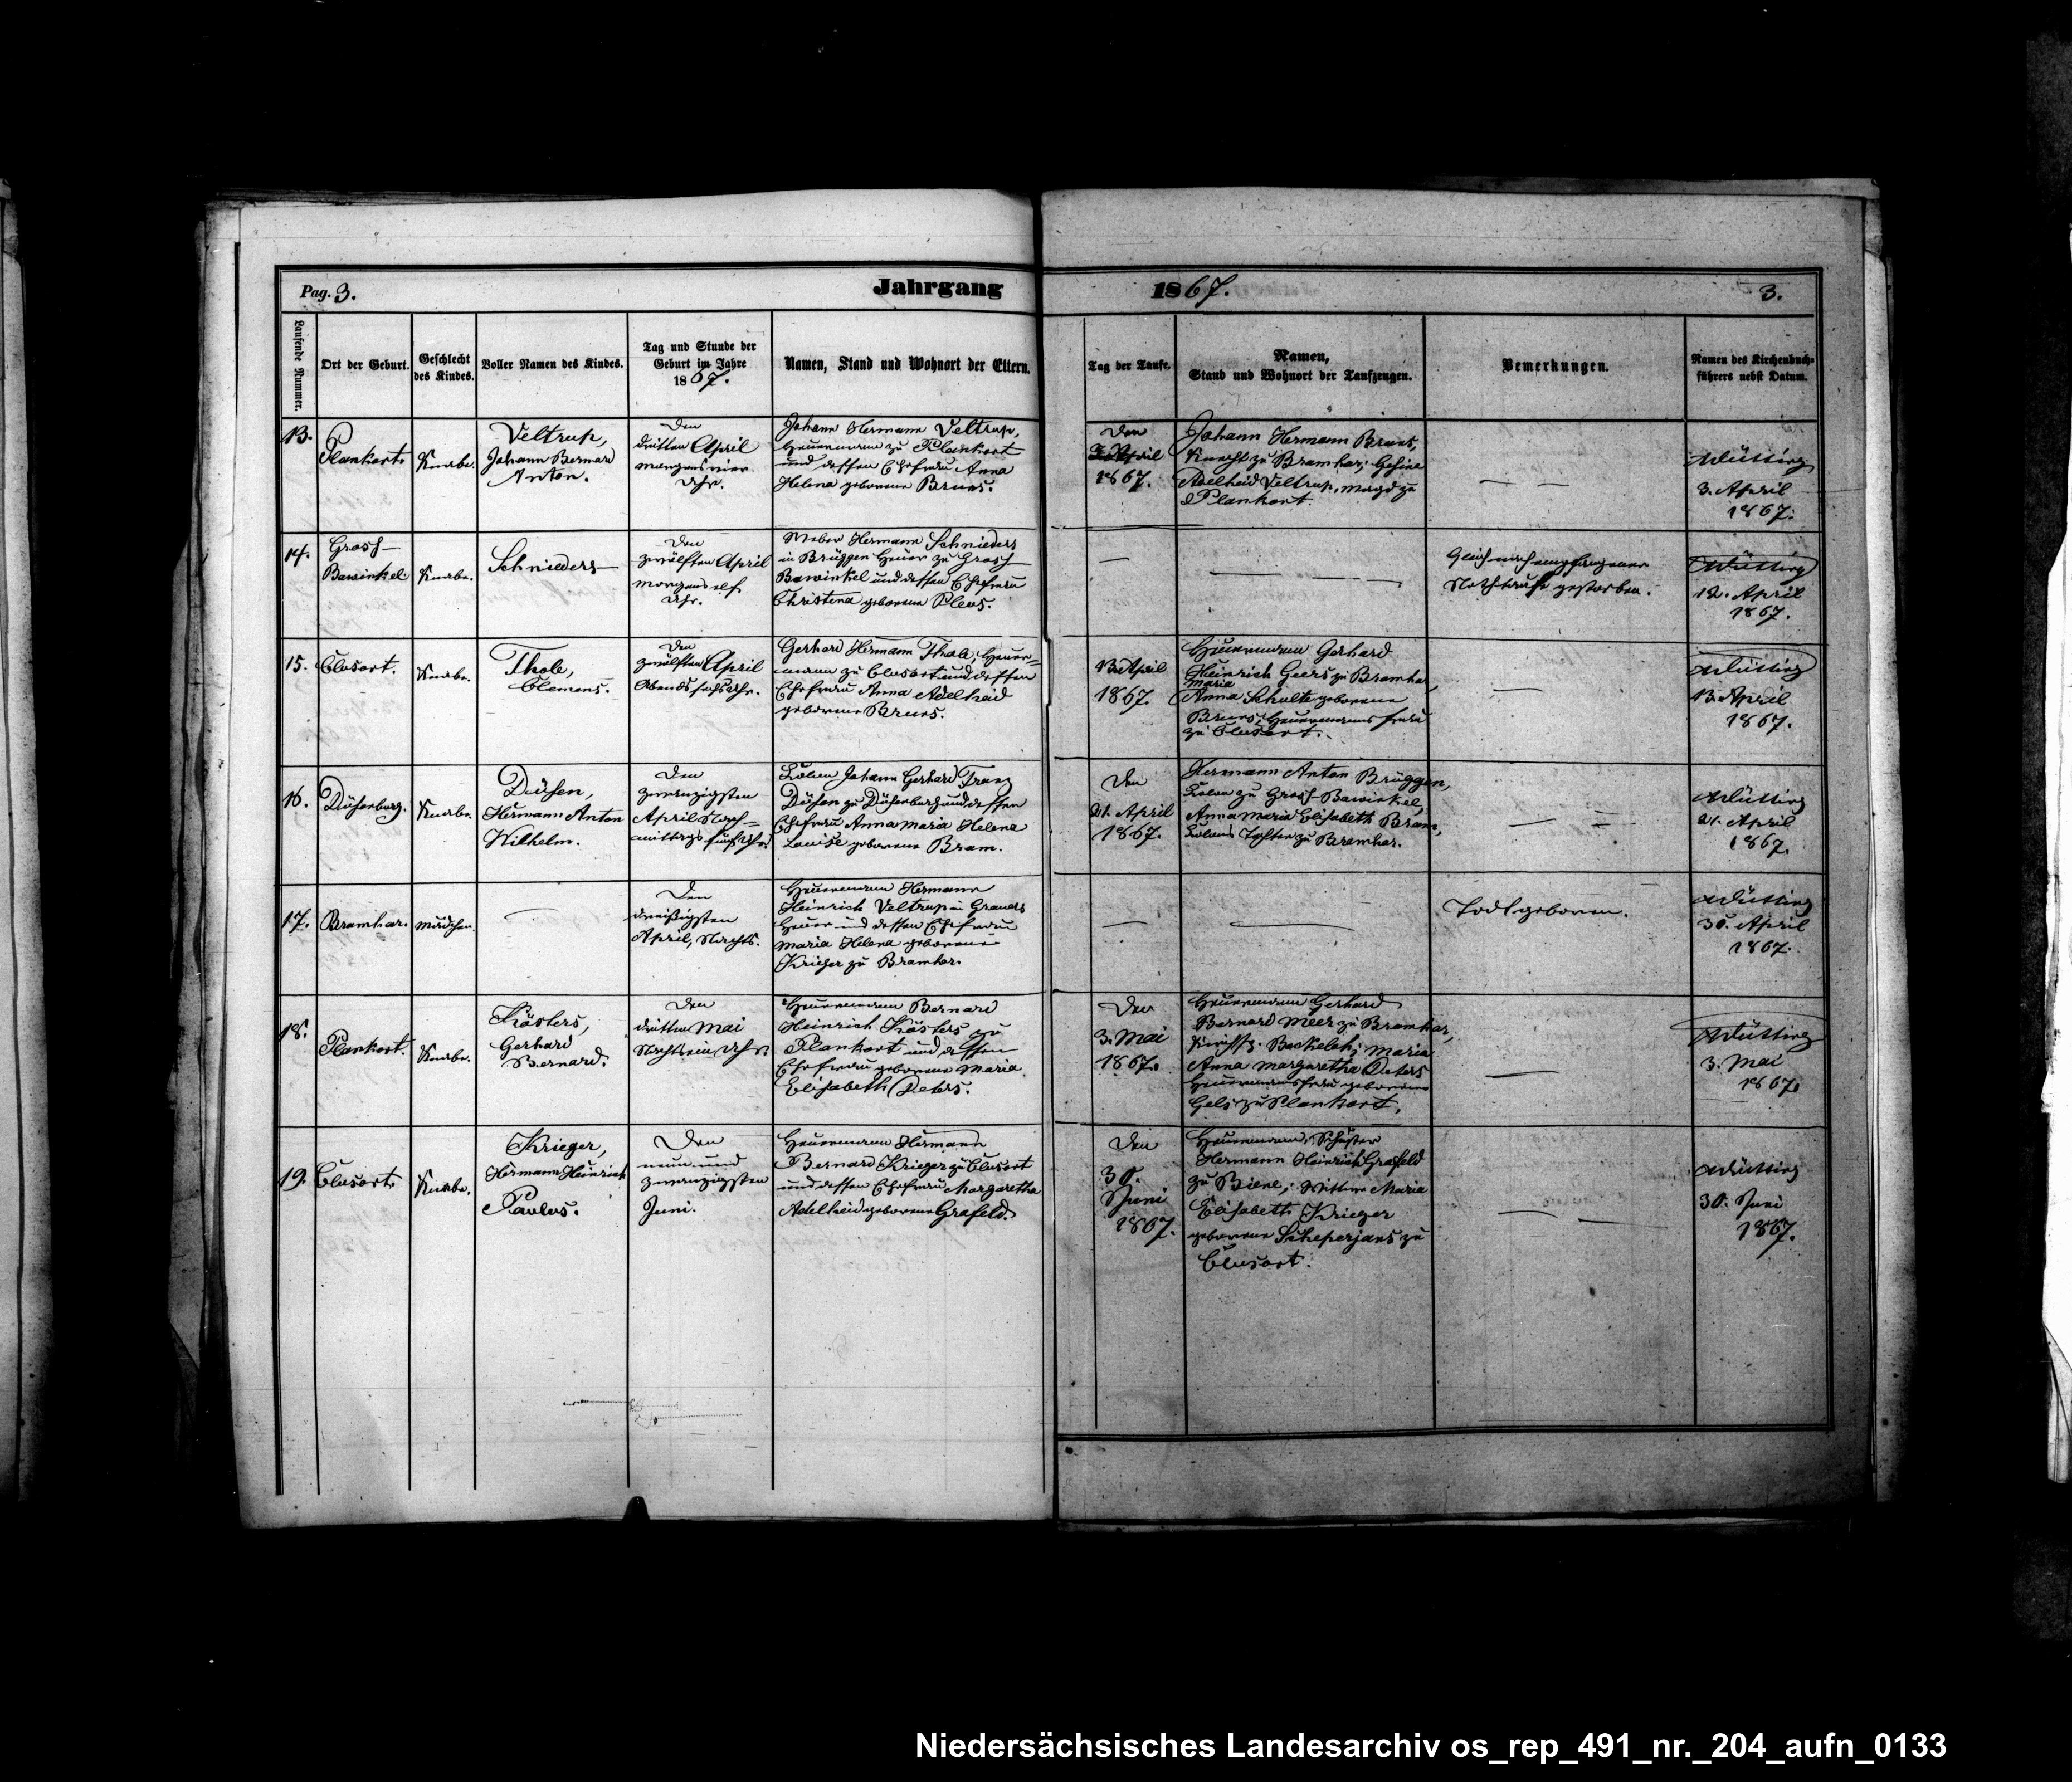 Pag. 3.
Jahrgang
1867.
3.
Laufende Nummer.
Ort der Geburt.
Geschlecht
des Kindes.
Voller Namen des Kindes.
Tag und Stunde der
Geburt im Jahre
1867.
Namen, Stand und Wohnort der Eltern.
Tag der Taufe.
Namen,
Stand und Wohnort der Taufzeugen.
Bemerkungen.
Namen des Kirchenbuch-
führers nebst Datum.
13.
Plankort.
Knabe.
Veltrup,
Johann Bernard
Anton.
Den
dritten April
morgens vier
Uhr.
Johann Hermann Veltrup,
Heuermann zu Plankort
und dessen Ehefrau Anna
Helena geborene Brues.
Den
April
1867.
Johann Hermann Brues,
Knecht zu Bramhar; Gesina
Adelheid Veltrup, Magd zu
Plankort.
Wütting
3. April
1867.
14.
Gross-
Bawinkel
Knabe.
Schnieders
Den
zwölften April
morgens elf
Uhr.
Weber Hermann Schnieders
in Brüggen Heuer zu Gross
Bawinkel und dessen Ehefrau
Christina geborene Pleus.
Gleich nach empfangener
Nothtaufe gestorben.
Wütting
12. April
1867.
15.
Clusort.
Knabe.
Thole,
Clemens.
Den
zwölften April
Abends sechs Uhr.
Gerhard Hermann Thole, Heuer=
mann zu Clusort und dessen
Ehefrau Anna Adelheid
geborene Brues.
13. April
1867.
Heuermann Gerhard
Heinrich Geers zu Bramhar,
Maria
Anna Schulte geborene
Brues, Heuermanns Frau
zu Clusort.
Wütting
13. April
1867.
16.
Düsenburg.
Knabe.
Düsen,
Hermann Anton
Wilhelm.
Den
zwanzigsten
April Nach=
mittags fünf Uhr.
Kolon Johann Gerhard Franz
Düsen zu Düsenburg und dessen
Ehefrau Anna Maria Helena
Louise geborene Bram.
Den
21. April
1867.
Hermann Anton Brüggen,
Kolon zu Gross-Bawinkel,
Anna Maria Elisabeth Bram,
Kolons Tochter zu Bramhar.
Wütting
21. April
1867.
17.
Bramhar.
Mädchen.
Den
dreißigsten
April, Nachts.
Heuermann Hermann
Heinrich Veltrup in Gravers
Heuer und dessen Ehefrau
Maria Helena geborene
Krieger zu Bramhar.
Todtgeboren.
Wütting
30. April
1867.
18.
Plankort.
Knabe.
Kösters,
Gerhard
Bernard.
Den
dritten Mai
Nachts ein Uhr.
Heuermann Bernard
Heinrich Kösters zu
Plankort und dessen
Ehefrau geborene Maria
Elisabeth Deters.
Den
3. Mai
1867.
Heuermann Gerhard
Bernard Meer zu Bramhar,
Maria
Anna Margaretha Deters
Heuermannsfrau geborene
Gels zu Plankort.
Wütting
3. Mai
1867.
19.
Clusort.
Knabe.
Krieger,
Hermann Heinrich
Paulus.
Den
neun und
zwanzigsten
Juni.
Heuermann Hermann
Bernard Krieger zu Clusort
und dessen Ehefrau Margaretha
Adelheid geborene Grafeld.
Den
30.
Juni
1867.
Heuermann, Schuster
Hermann Heinrich Grafeld
zu Biene; Wittwe Maria
Elisabeth Krieger
geborene Scheperjans zu
Clusort.
Wütting
30. Juni
1867.
Niedersächsisches Landesarchiv os_rep_491_nr._204_aufn_0133